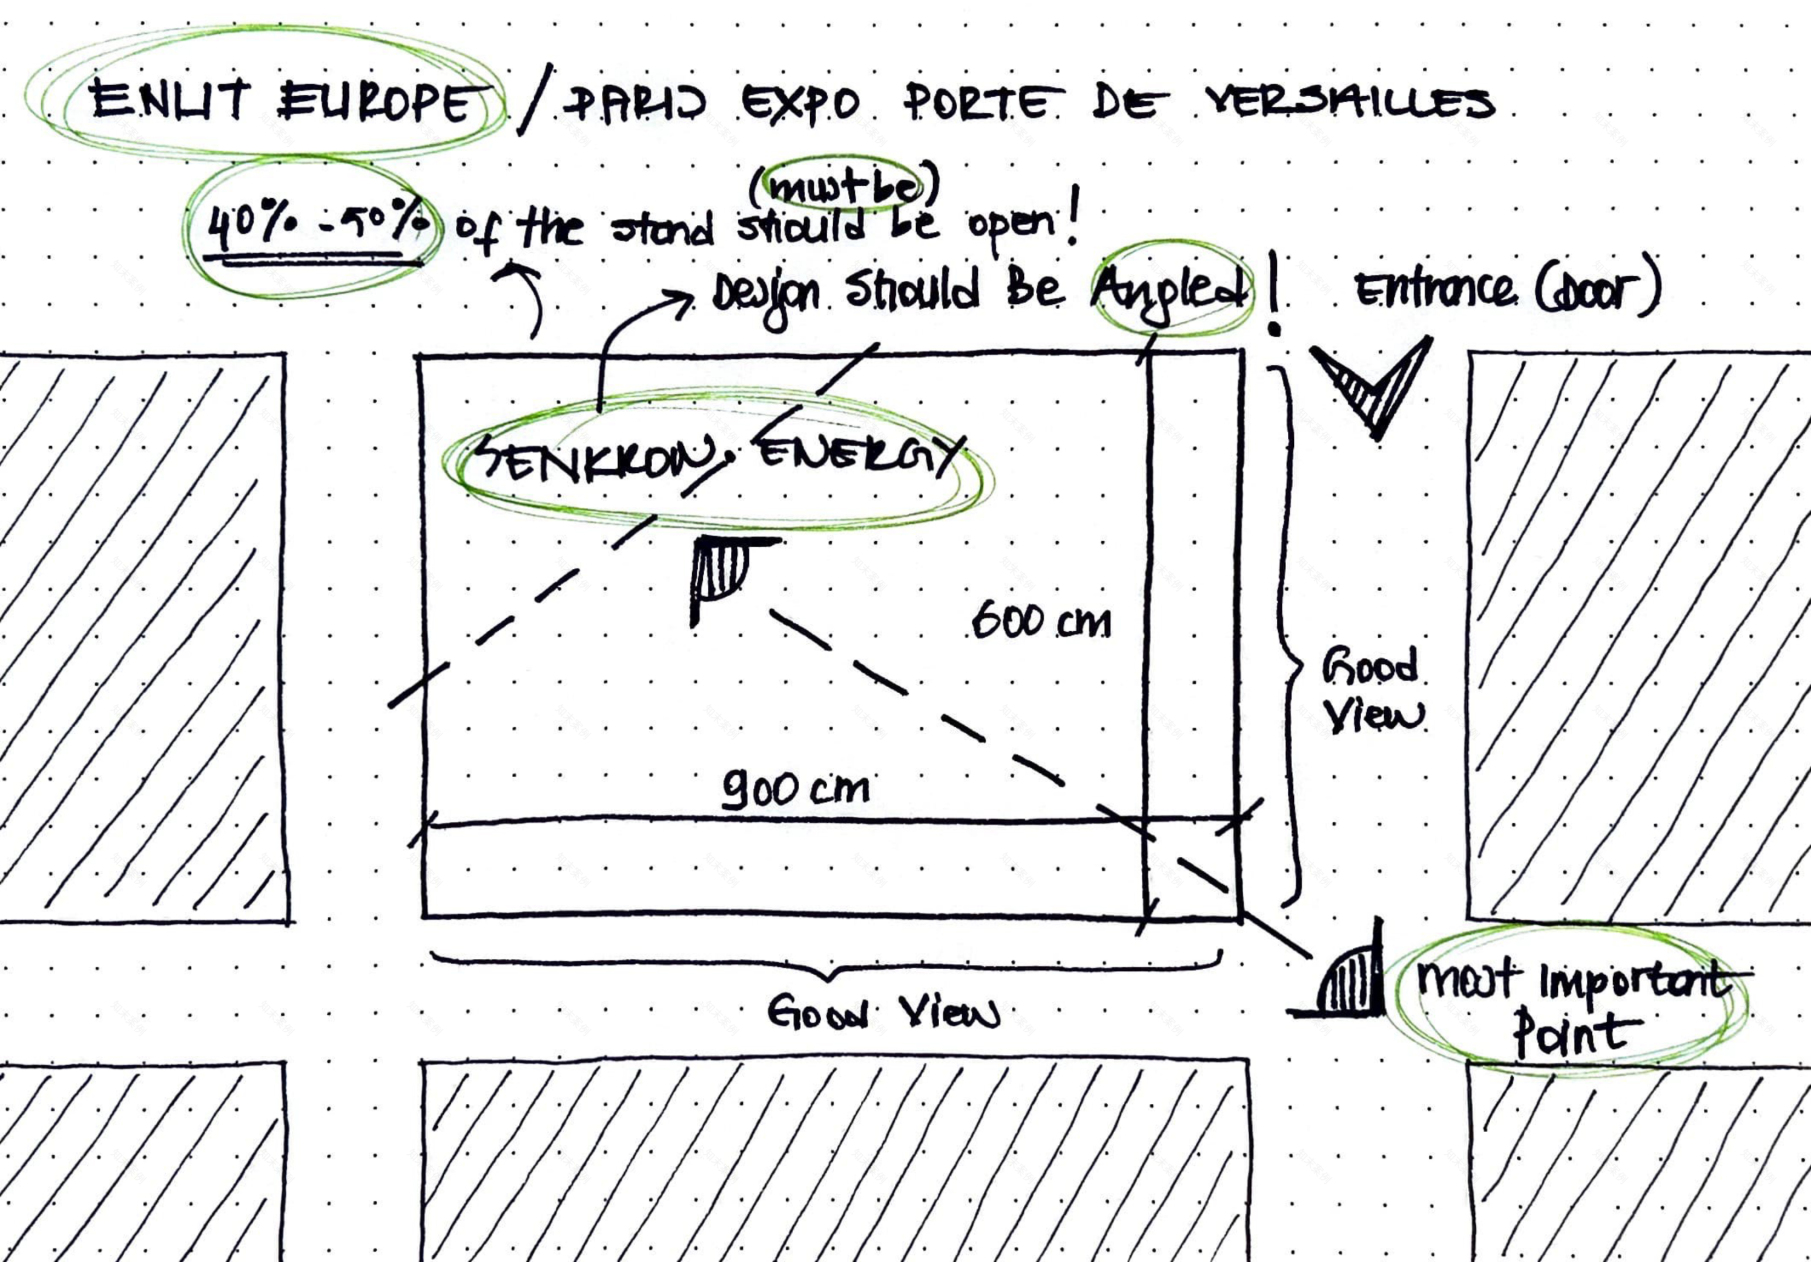 ENLIT EUROPE / PARIS EXPO PORTE DE VERSAILLES
(must be)
40% - 50% of the stand should be open!
Design Should Be Angled!
Entrance (Door)
SENKRON ENERGY
600 cm
Good
View
900 cm
Good View
most important
Point